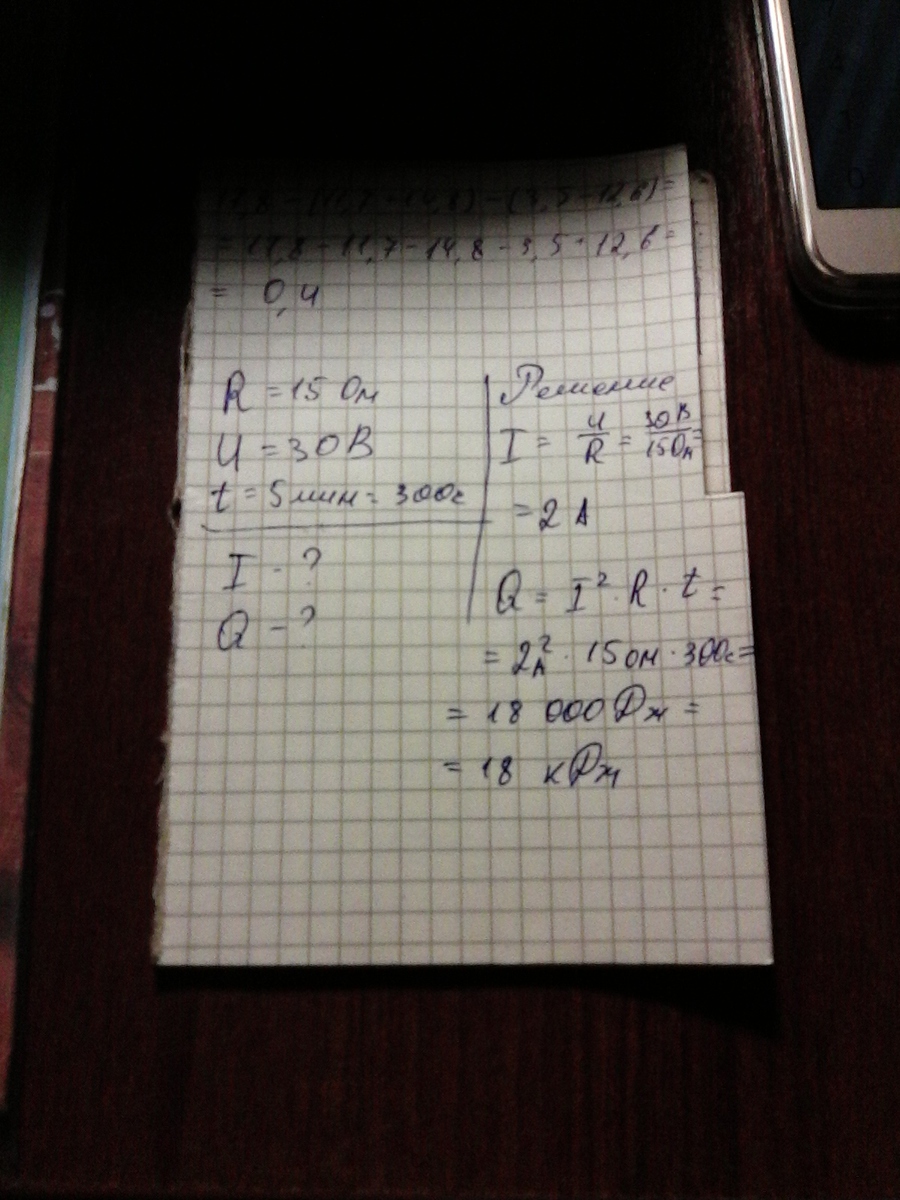 = 11,8 - 11,7 - 14,8 - 3,5 + 12,6 =
= 0,4
R = 15 Ом
U = 30 В
t = 5 мин = 300с
I - ?
Q - ?
Решение
I = U/R = 30В/15Ом =
= 2 А
Q = I² · R · t =
= 2А² · 15 Ом · 300с =
= 18 000 Дж =
= 18 кДж